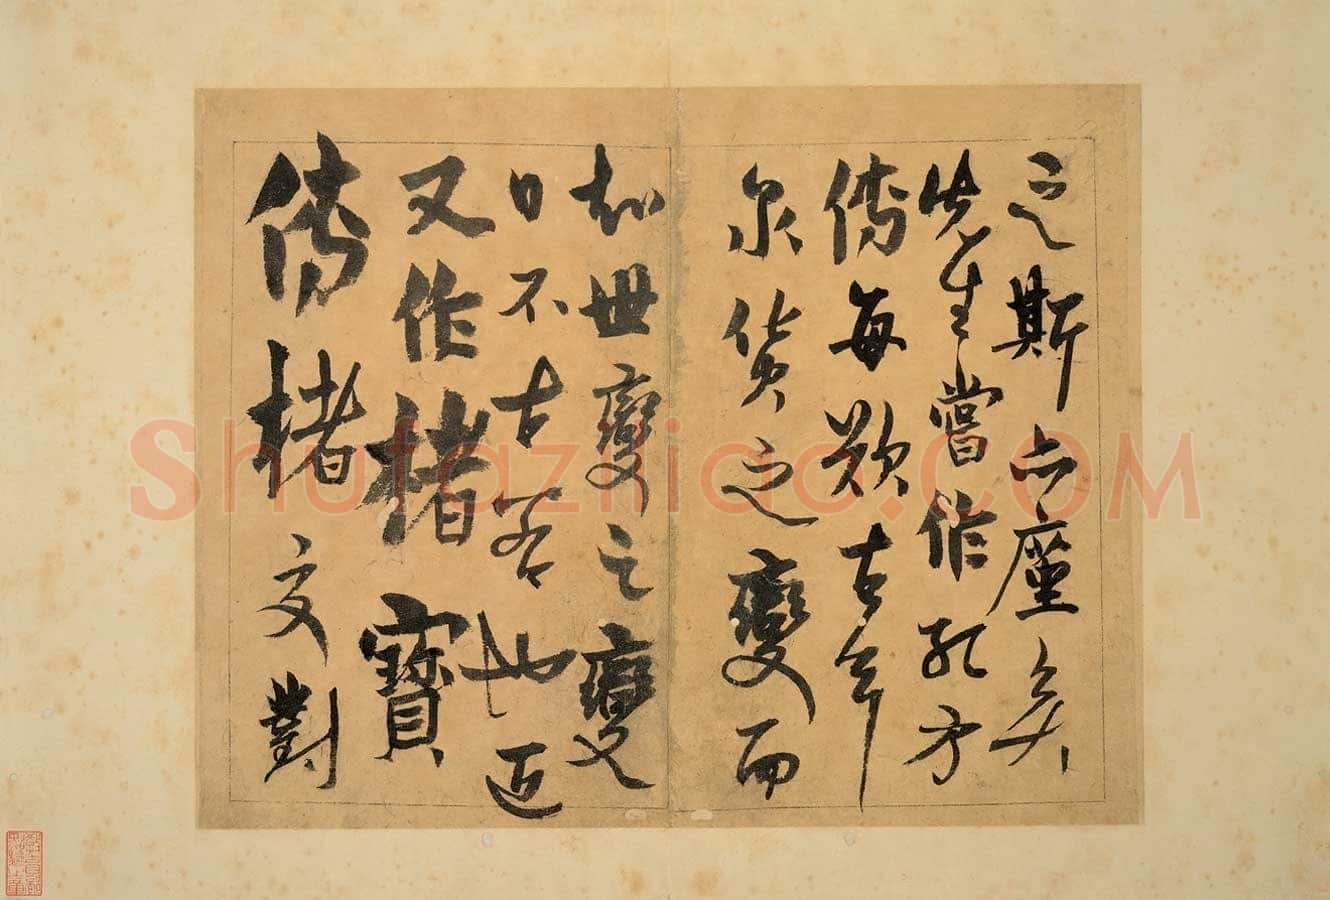 之斯座矣
先生嘗作孔方
傳每歎古今
泉貨之變而
知世變之變
日不古若也近
又作楮寶
傳楮交對
Shufazhiao.COM